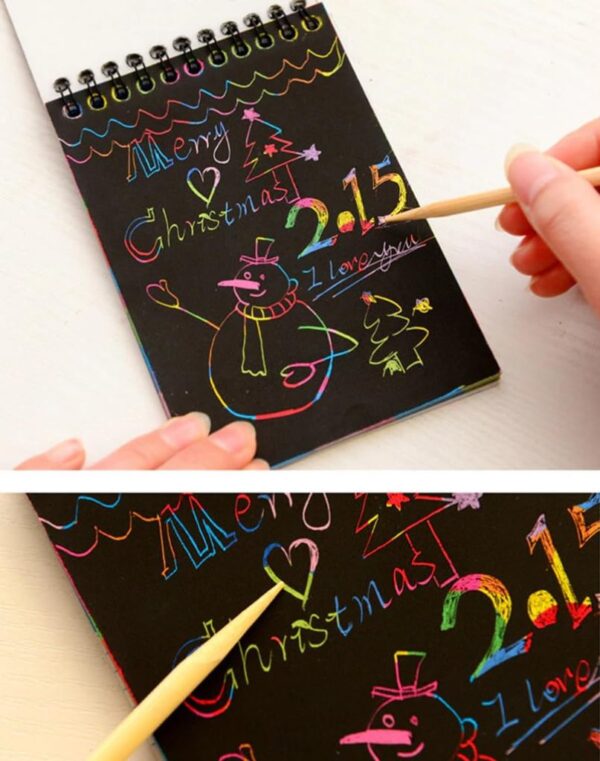 Merry
Christmas
2.15
I love you
Merry
Christmas
2.15
I love